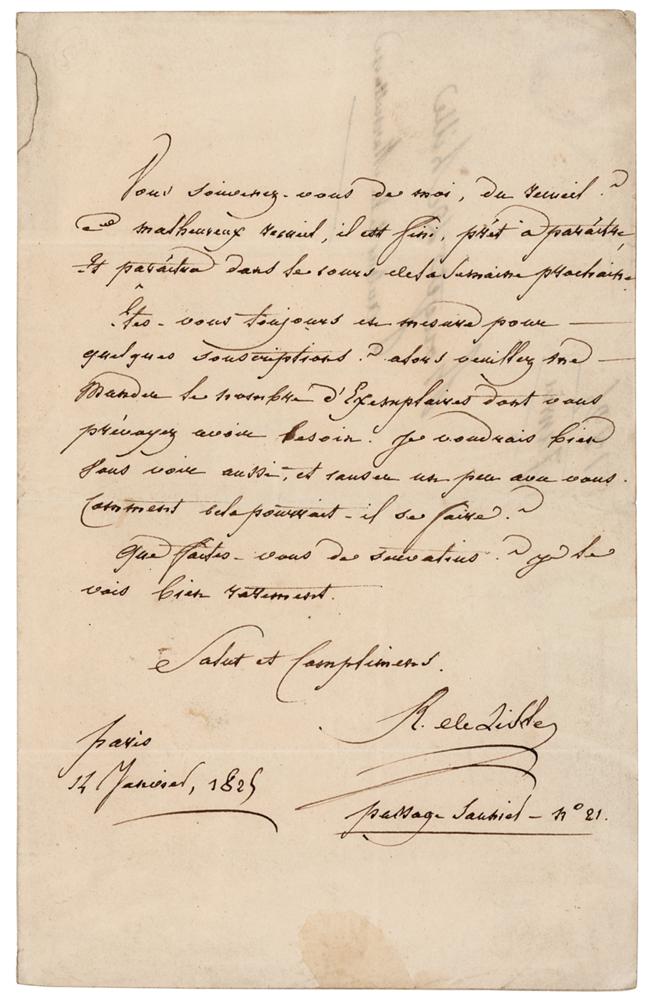 Vous souvenez-vous de moi, du recueil ?
Ce malheureux recueil, il est fini, prêt à paraître,
Et paraîtra dans le cours de la Semaine prochaine.
Êtes-vous toujours en mesure pour —
quelques souscriptions ? alors veuillez me —
Mander le nombre d'Exemplaires dont vous
prévoyez avoir besoin. Je voudrais bien
vous voir aussi, et causer un peu avec vous.
Comment cela pourrait-il se faire ?
Que faites-vous de ? je le
vois bien rarement.
Salut et Compliments.
R. de Lisle
Paris
14 Janvier, 1825
passage Saunier - n° 21.